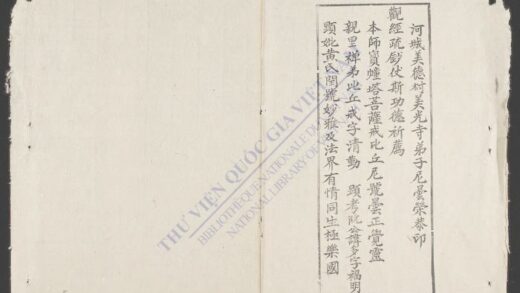 河城美德村美光寺弟子尼曇榮恭印
觀經疏鈔伏斯功德祈薦
本師寶幢塔菩薩戒比丘尼號曇正覺靈
親里禅弟比丘戒字清勤 顕考阮公諱多字福明
顕妣黄氏閏號妙雅及法界有情同生極樂國
THƯ VIỆN QUỐC GIA VIỆT NAM
BIBLIOTHÈQUE NATIONALE DU
NATIONAL LIBRARY OF